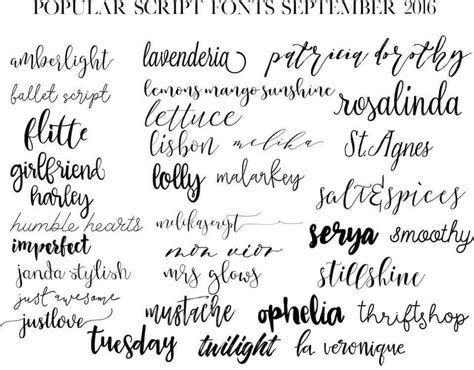 POPULAR SCRIPT FONTS SEPTEMBER 2016
amberlight
lavenderia
patricia dorothy
ballet script
lemons mango sunshine
rosalinda
lettuce
flitte
lisbon
melika
St. Agnes
girlfriend
lolly
malarkey
harley
salt&spices
humble hearts
melikascript
serya
smoothy
imperfect
mon vior
janda stylish
mrs glows
stillshine
just awesome
justlove
mustache
ophelia
thriftshop
tuesday
twilight
la veronique